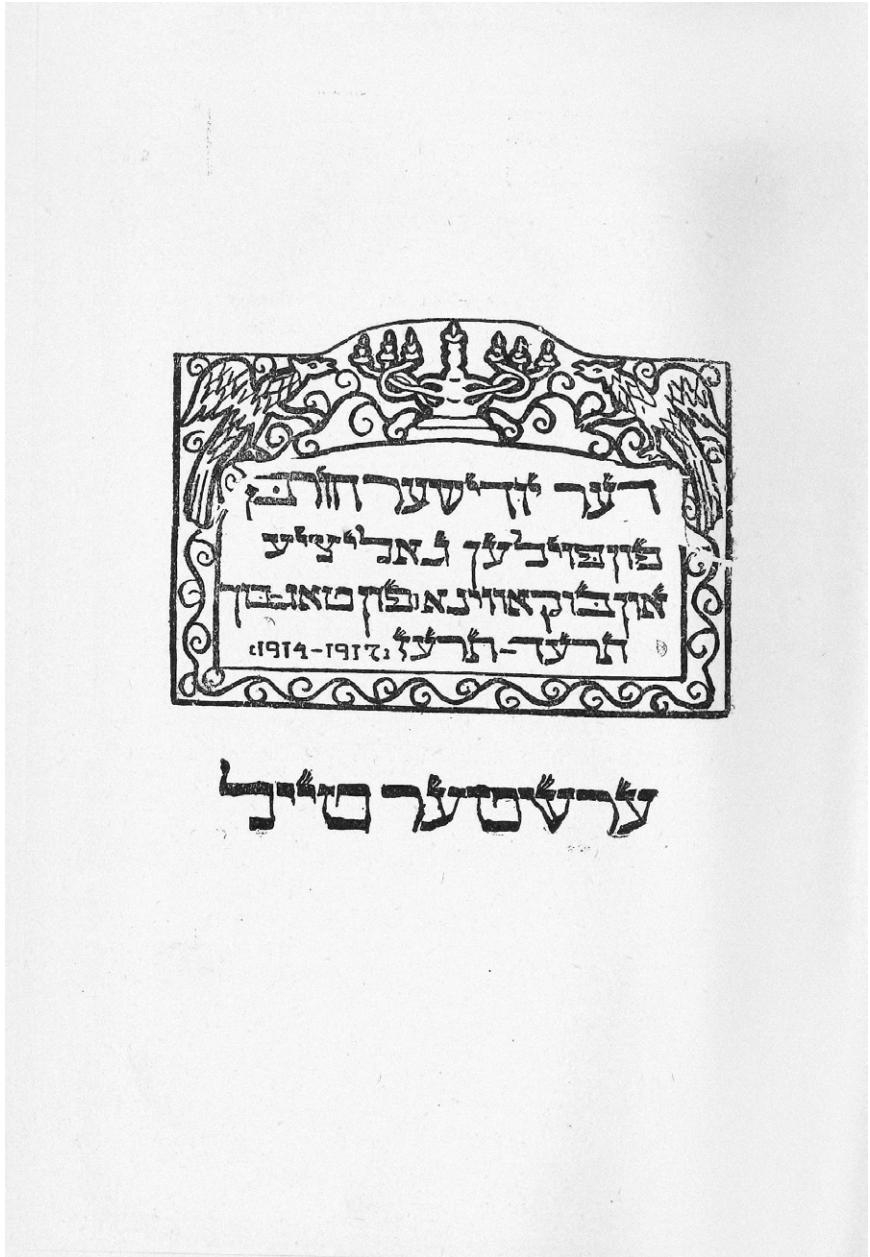 דער יודישער חורבן
פון פוילען גאליציע
און בוקאווינא, פון טאג-בוך
תרע״ד-תרע״ז (1914-1917)
ערשטער טייל